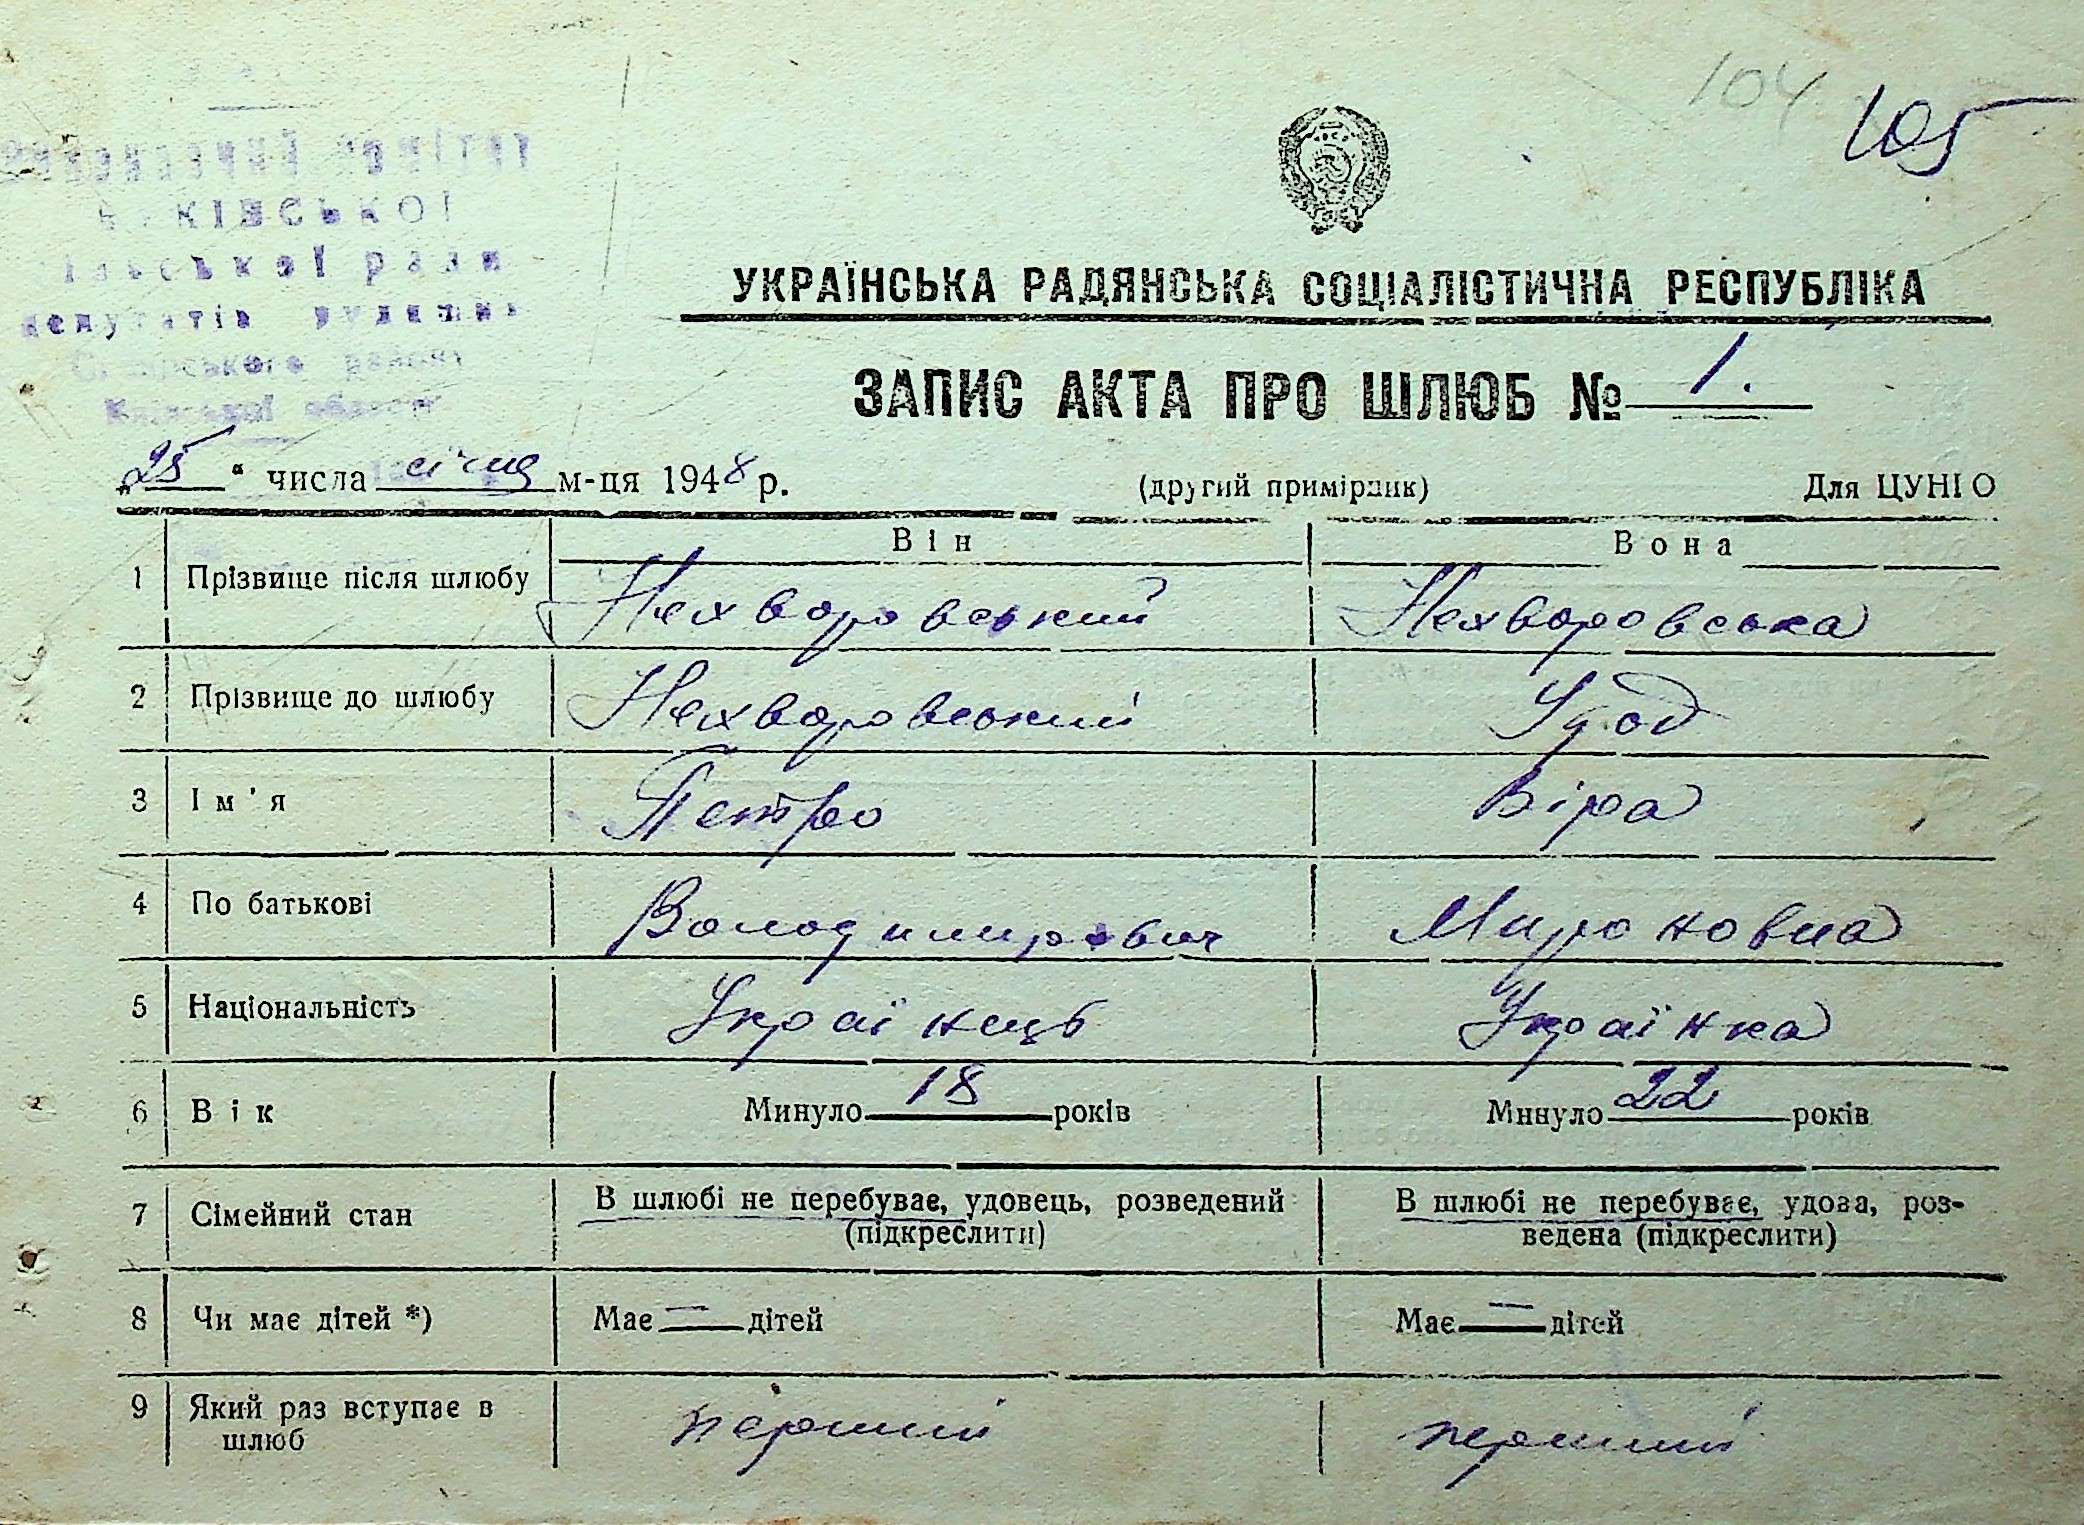 104
105
комітет
ради
депутатів
Київської області
УКРАЇНСЬКА РАДЯНСЬКА СОЦІАЛІСТИЧНА РЕСПУБЛІКА
ЗАПИС АКТА ПРО ШЛЮБ № 1.
„25“ числа січня м-ця 1948 р. (другий примірник) Для ЦУНГО
Він Вона
1 Прізвище після шлюбу Нехворовський Нехворовська
2 Прізвище до шлюбу Нехворовський Удод
3 Ім'я Петро Віра
4 По батькові Володимирович Мироновна
5 Національність Українець Українка
6 Вік Минуло 18 років Минуло 22 років
7 Сімейний стан В шлюбі не перебуває, удовець, розведений В шлюбі не перебуває, удова, роз-
(підкреслити) ведена (підкреслити)
8 Чи має дітей *) Має — дітей Має — дітей
9 Який раз вступає в перший перший
шлюб